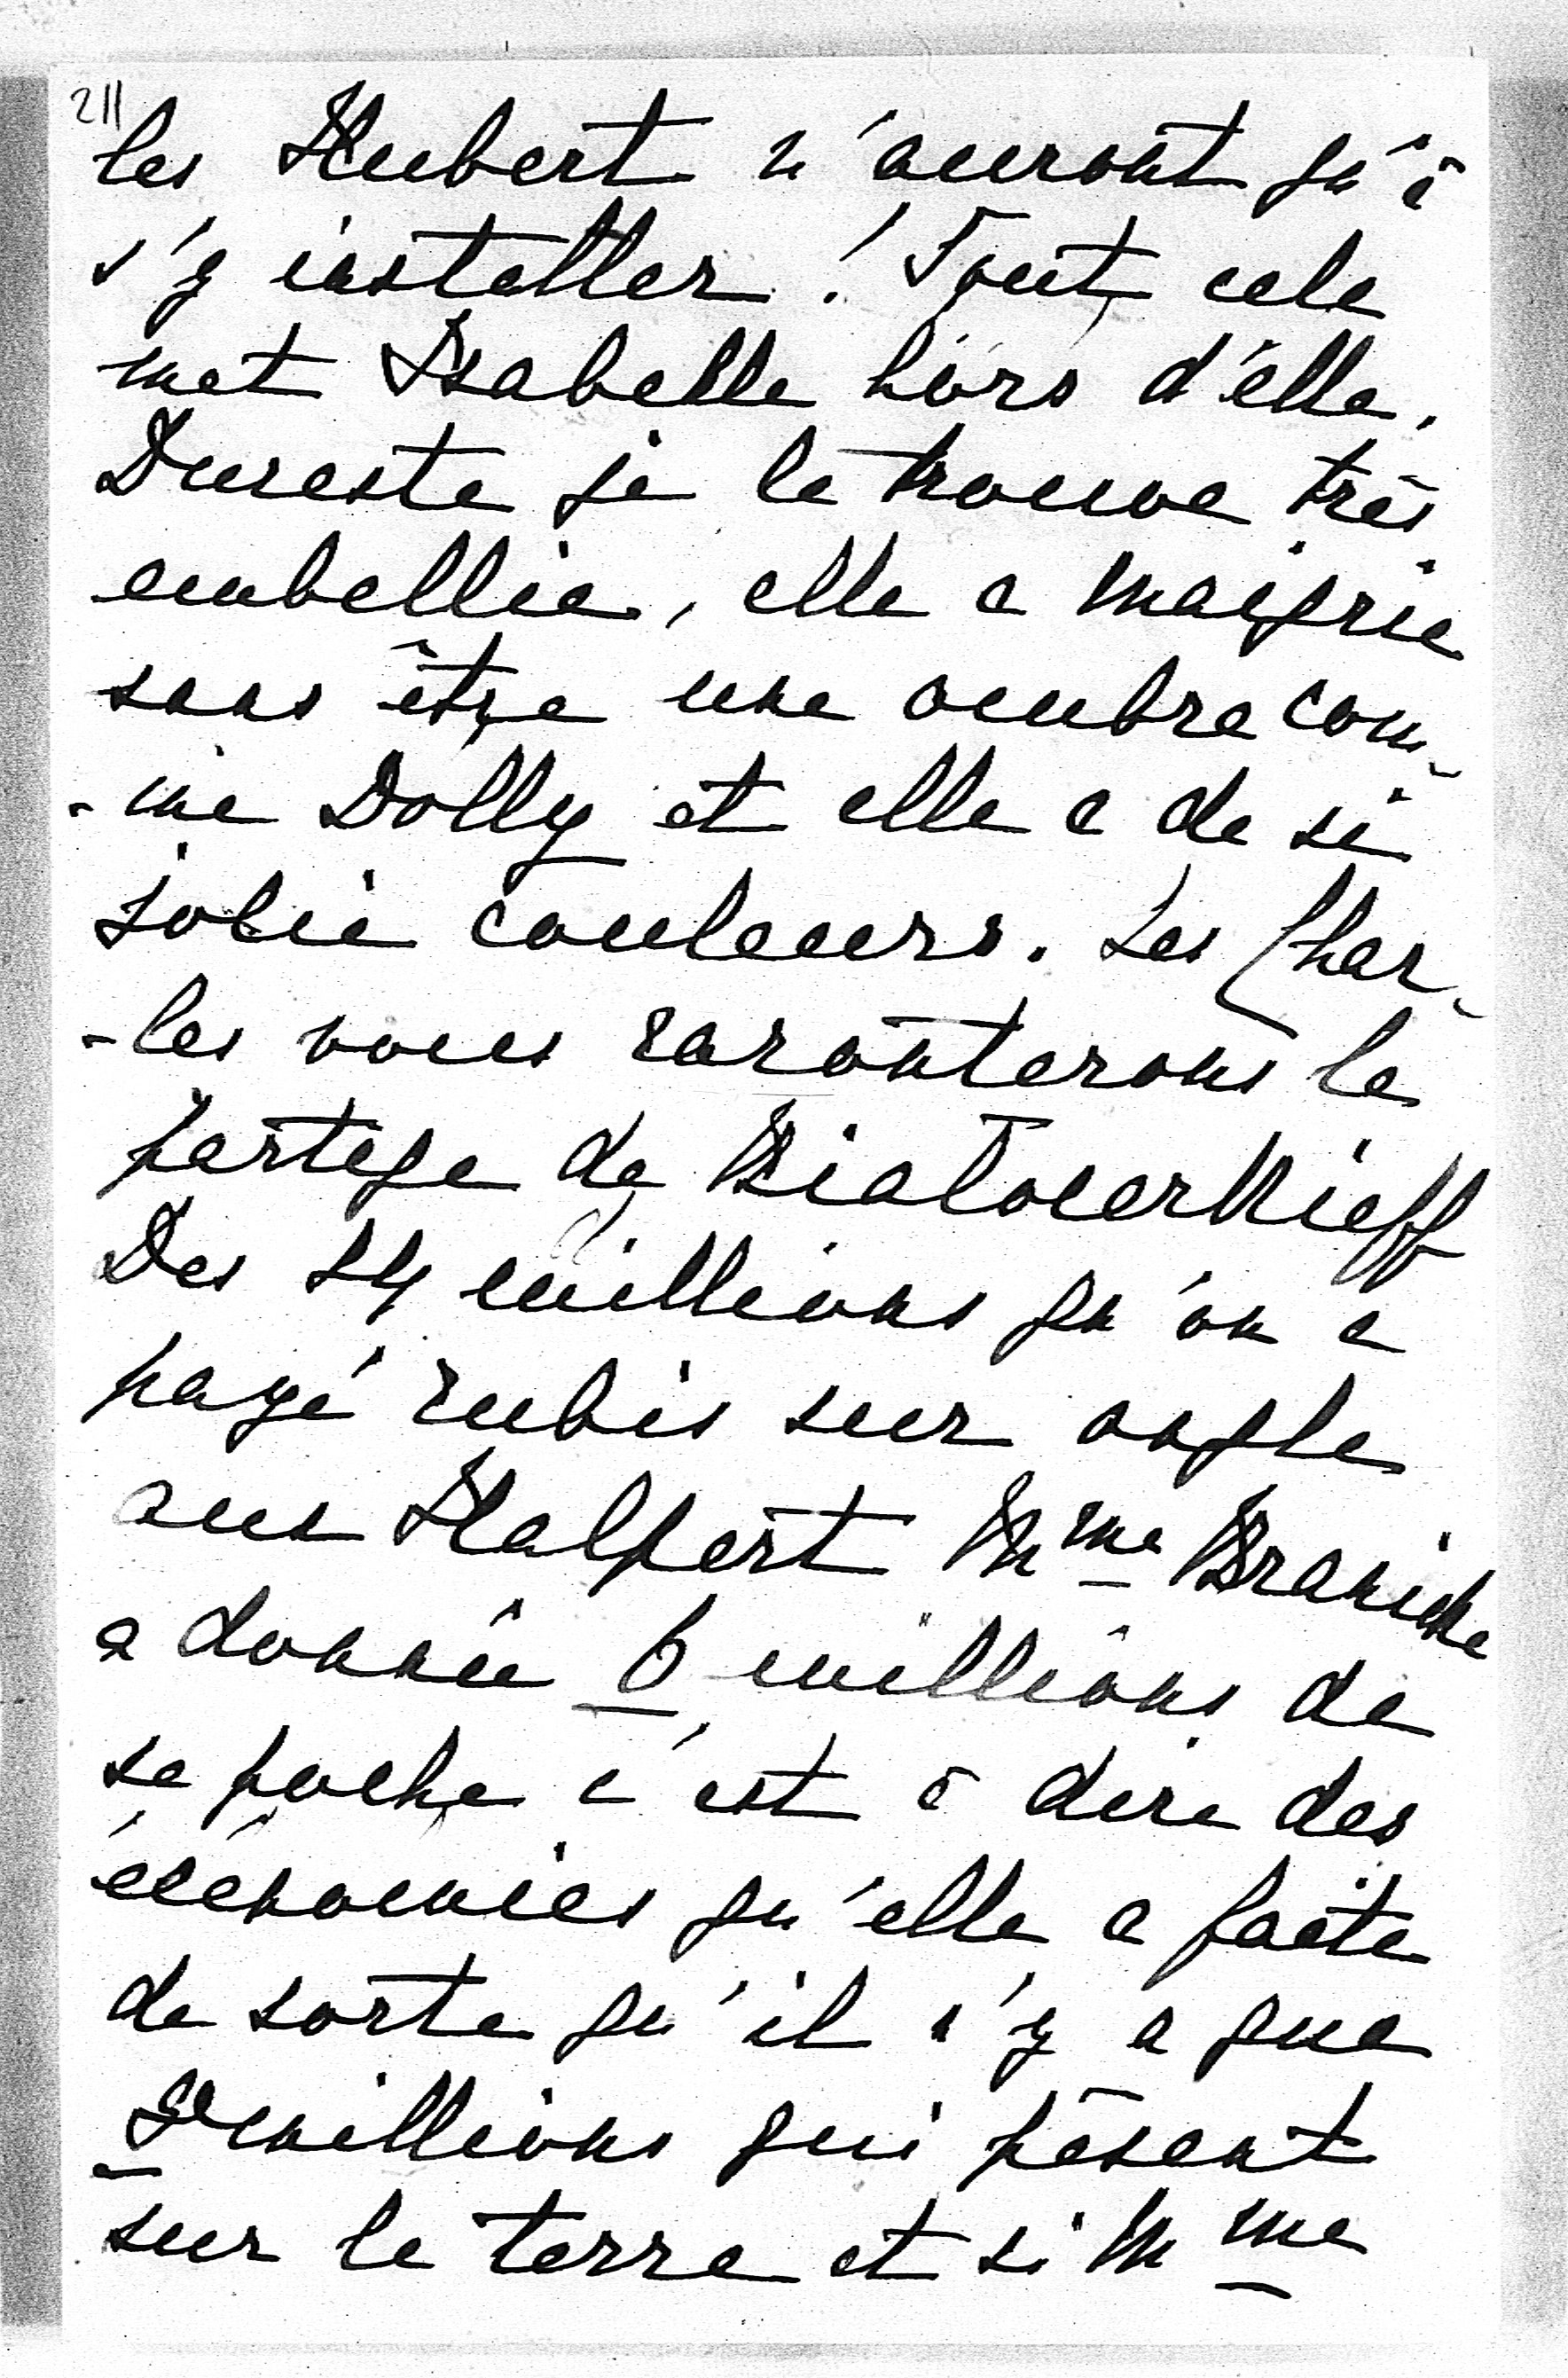 211
les Hubert n'auront qu'à
s'y installer! Tout cela
met Isabelle hors d'elle.
Dureste je la trouve très
embellie, elle a maigrie
sans être une ombre com-
-me Dolly et elle a de si
jolie couleurs. Les Char-
-les vous raronterons le
partage de Białocerkieff
Des 14 millions qu'on a
payé rubis sur ongle
aux Halpert Mme Branicka
a donnée 6 millions de
sa poche c'est à dire des
économies qu'elle a faite
de sorte qu'il n'y a que
millions qui pèsent
sur la terre et si Mme